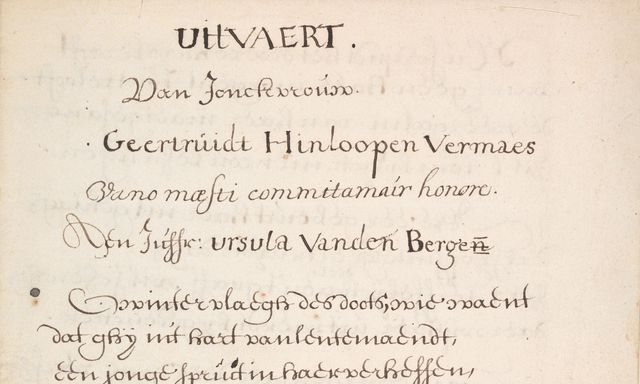 UITVAERT.
Van Jonckvrouw.
Geertruidt Hinloopen Vermaes
Vano mæsti commitamair honore.
Aen Juffr: ursula Vanden Bergen
Ghy wintervlaegh des doots, wie waent
dat ghy uit hart van lentemaendt,
een jonge spruit in haer verheffen,